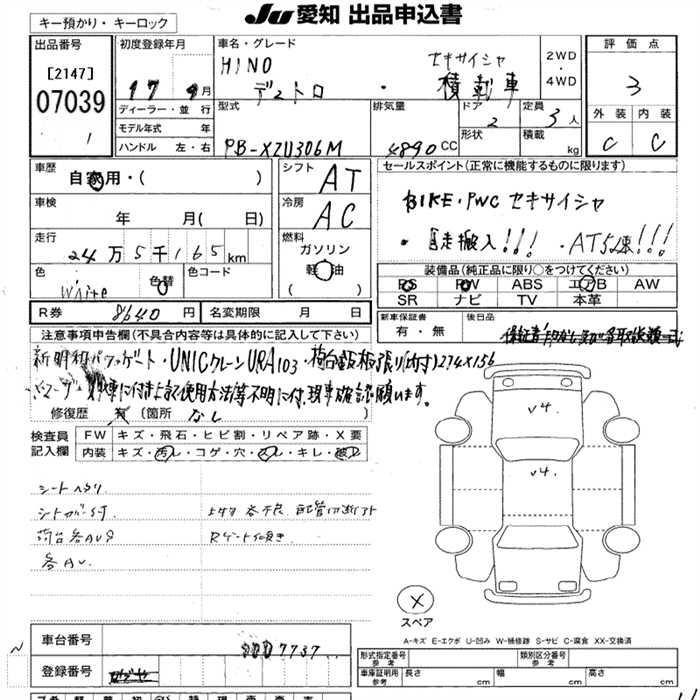 キー預かり・キーロック
JU愛知 出品申込書
出品番号
[2147]
07039
1
初度登録年月
17 9月
ディーラー・並行
モデル年式 年
ハンドル 左・右
車名・グレード
HINO
デュトロ
セキサイシャ
積載車
2WD
4WD
型式
PB-XZU306M
排気量
4890CC
ドア
2
形状
定員
3人
積載
kg
評価点
3
外装 内装
C C
車歴
自家用・( )
車検
年 月( 日)
走行
24万5千165km
色
White
色替
色コード
シフト
AT
冷房
AC
燃料
ガソリン
軽油
( )
R券 8640円 名変期限 月 日
セールスポイント(正常に機能するものに限ります)
BIKE・PWC セキサイシャ
・自走搬入!!! ・AT5速!!!
装備品(純正品に限り○をつけてください)
PS PW ABS エアB AW
SR ナビ TV 本革
新車保証書
有・無
後日品
注意事項申告欄(不具合内容等は具体的に記入して下さい)
UNICクレーンURA103・荷台鉄板張り(内寸)274×156
使用方法等不明に付、現車確認お願います。
修復歴 有 (箇所 なし
検査員
記入欄
FW キズ・飛石・ヒビ割・リペア跡・X要
内装 キズ・汚レ・コゲ・穴・スレ・キレ・破レ
シートヘタリ
荷台各AU9
各AU
配管切断アト
v4.
v4.
X
スペア
A-キズ E-エクボ U-凹み W-補修跡 S-サビ C-腐食 XX-交換済
車台番号
7737
登録番号
形式指定番号
参考
類別区分番号
参考
車庫証明用
参考
長さ cm 幅 cm 高さ cm